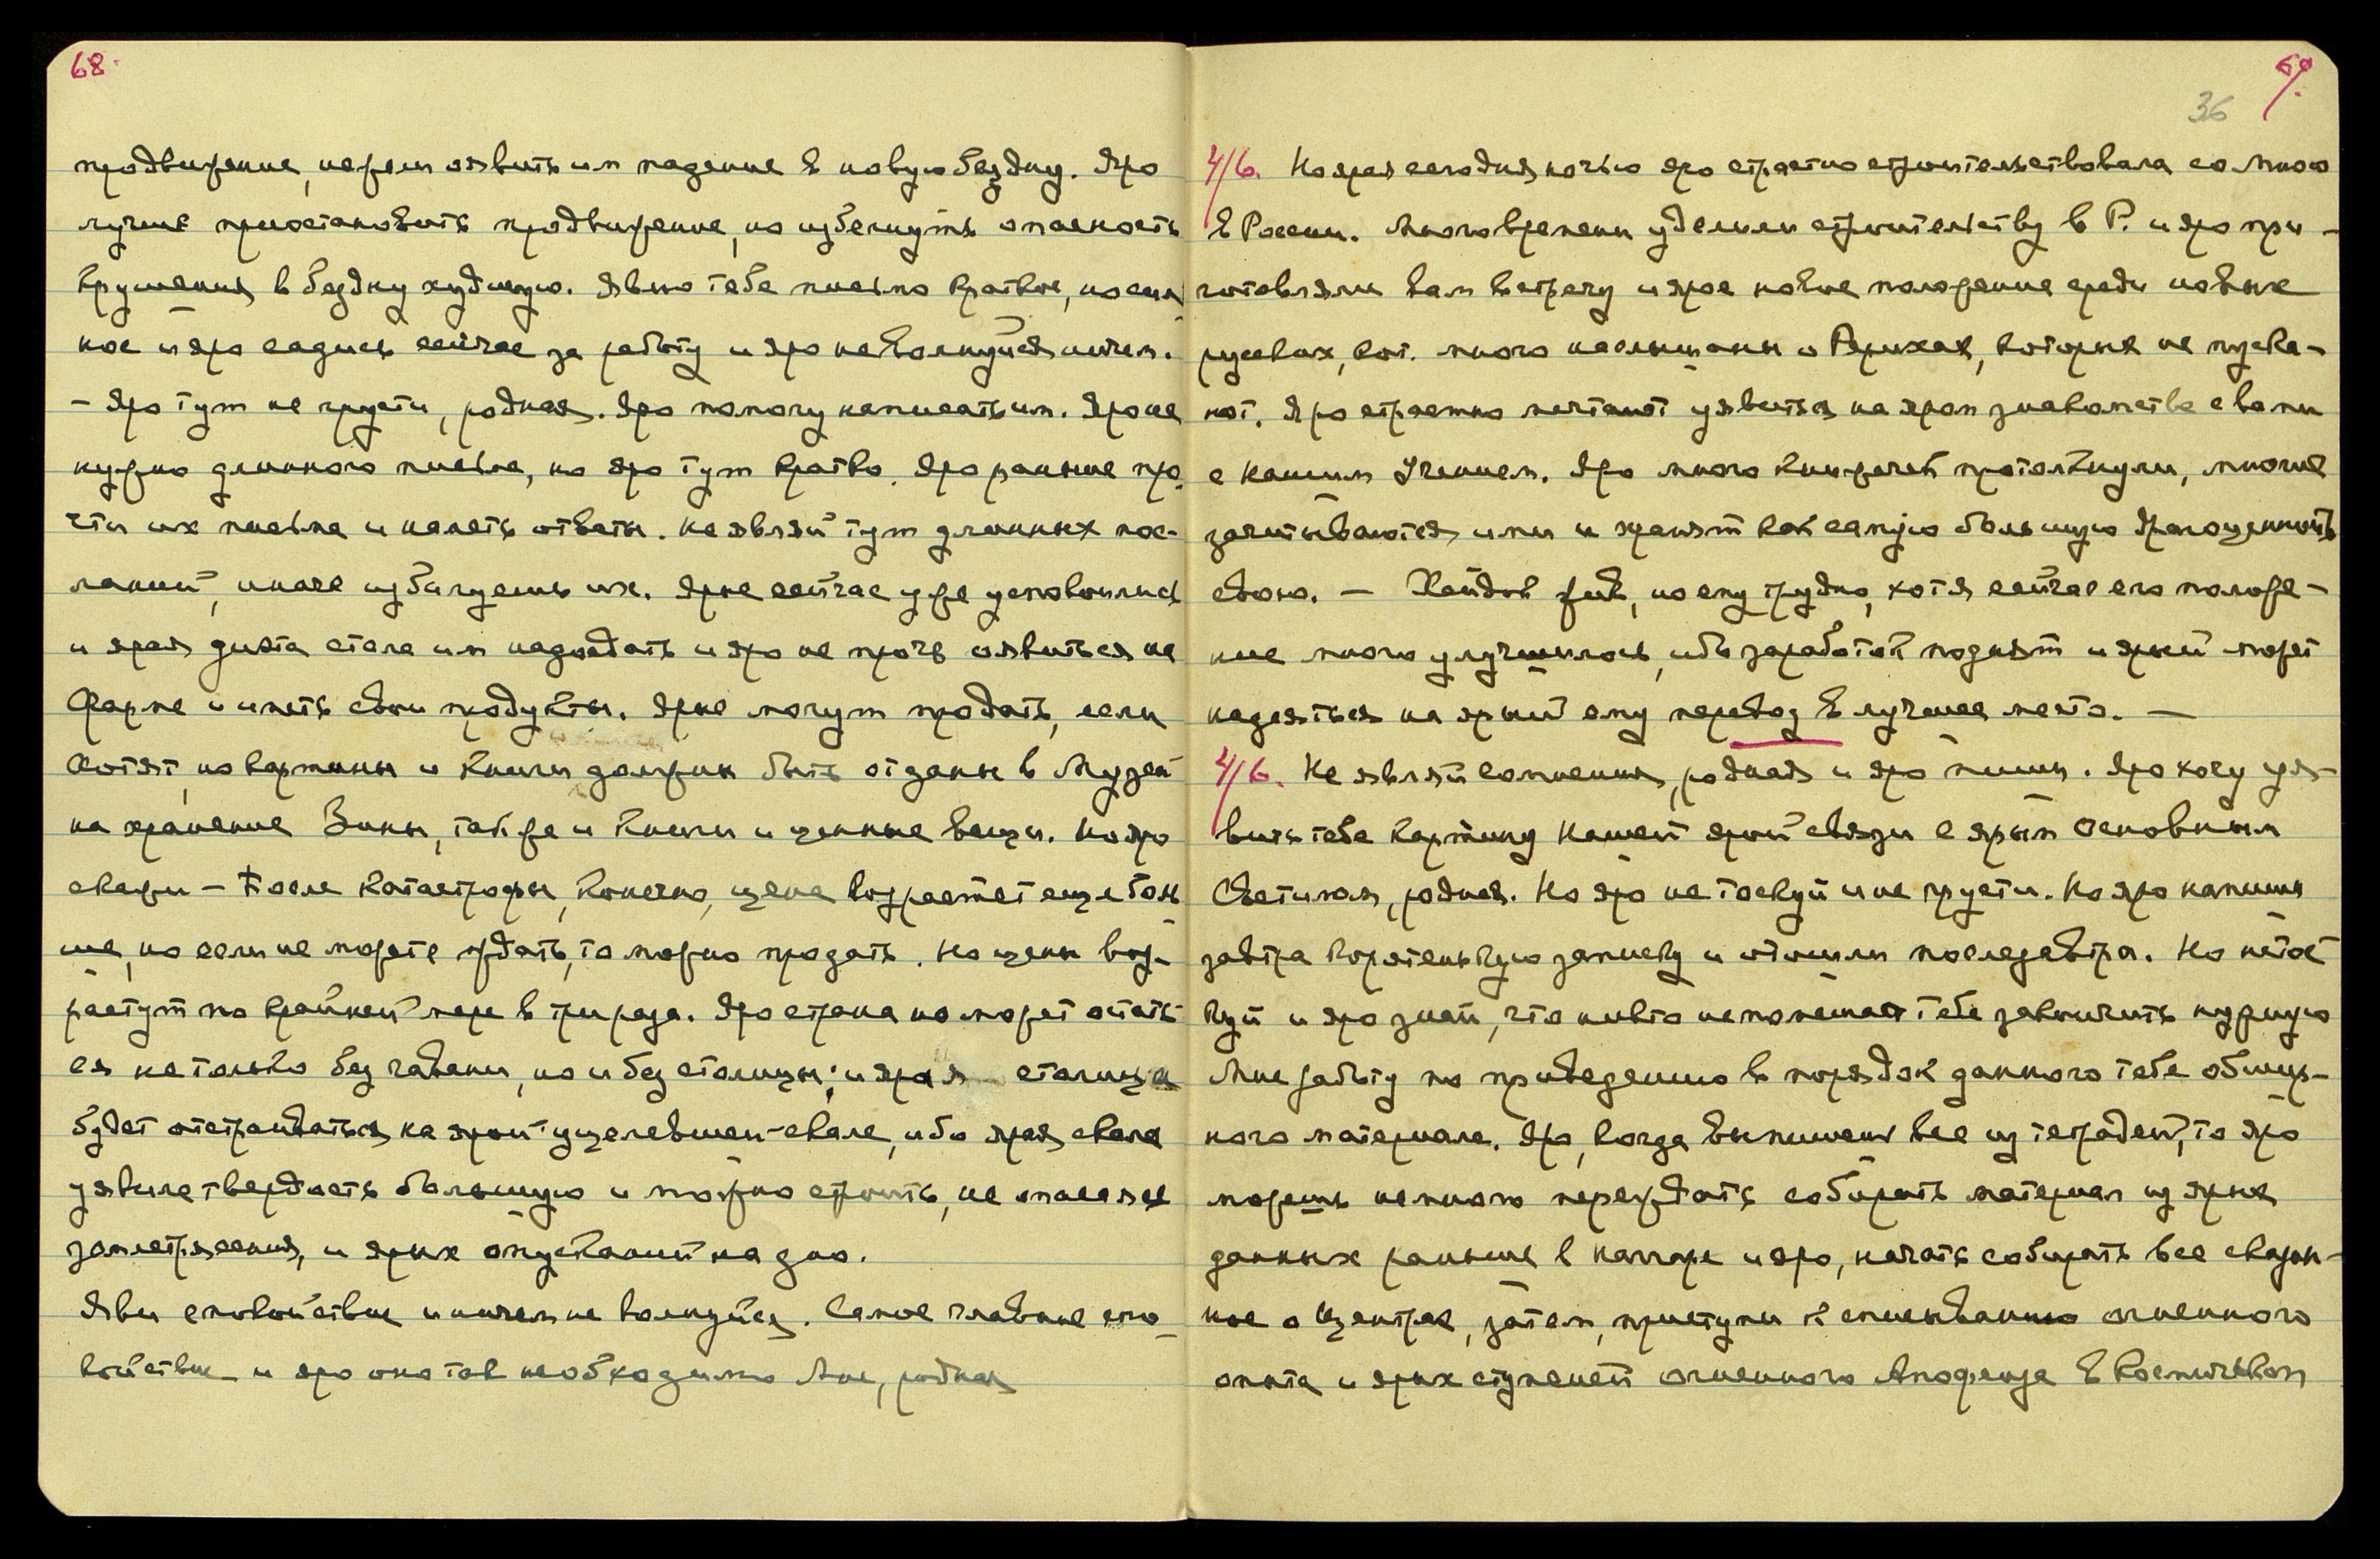 68.
продвижение, нежели явить им падение в новую бездну. Яро
лучше приостановить продвижение, но избегнуть опасность
крушения в бездну худшую. Явно тебе письмо краткое, но силь
ное и яро садись сейчас за работу и яро не волнуйся ничем.
— Яро тут не грусти, родная. Яро помогу написать им. Яро не
нужно длинного письма, но яро тут кратко. Яро раньше про
чти их письма и начать ответы. Не являй тут длинных пос-
ланий, иначе избалуешь их. Ярые сейчас уже успокоились
и ярая диэта стала им надоедать и яро не прочь явиться на
Фарме и иметь свои продукты. Ярые могут продать, если
хотят, но картины и книги должны быть отданы в Музей
на хранение Зины, также и книги и ценные вещи. Но яро
скажи — После катастрофы, конечно, цена возрастет еще боль
ше, но если не можете ждать, то можно продать. Но цены воз-
растут по крайней мере в три раза. Яро страна но может остать-
ся не только без гавани, но и без столицы; и ярая столица
будет отстраиваться на ярой уцелевшей скале, ибо ярая скала
уявила твердость большую и можно строить, не опасаясь
землетрясения, и ярых опусканий на дно.
Яви спокойствие и ничем не волнуйся. Самое главное спо-
койствие и яро оно так необходимо Мне, родная
69.
36
4/6. Но ярая сегодня ночью яро страстно строительствовала со Мною
в России. Много времени уделили строительству в Р. и яро при-
готовляли вам встречу и ярое новое положение среди новых
русских, кот. много наслышаны о Рерихах, которых не пуска-
ют. Яро страстно мечтают уявиться на яром знакомстве с вами
с Нашим Учением. Яро много книжечек протолкнули, многие
зачитываются ими и хранят как самую большую драгоценность
свою. — Хейдок жив, но ему трудно, хотя сейчас его положе-
ние много улучшилось, ибо заработок поднят и ярый может
надеяться на ярый ему перевод в лучшее место. —
4/6. Не являй сомнения, родная и яро пиши. Яро хочу уя-
вить тебе картину Нашей ярой связи с ярым Основным
Светилом, родная. Но яро не тоскуй и не грусти. Но яро напиши
завтра коротенькую записку и отошли послезавтра. Но не тос
куй и яро знай, что никто не помешает тебе закончить нужную
Мне работу по приведению в порядок данного тебе обшир-
ного материала. Яро, когда выпишешь все из тетрадей, то яро
можешь немного переждать собирать материал из ярых
данных раньше в Нагаре и яро, начать собирать все сказан-
ное о Центрах, затем, приступи к списыванию огненного
опыта и ярых ступеней огненного Апофеоза в Космическом